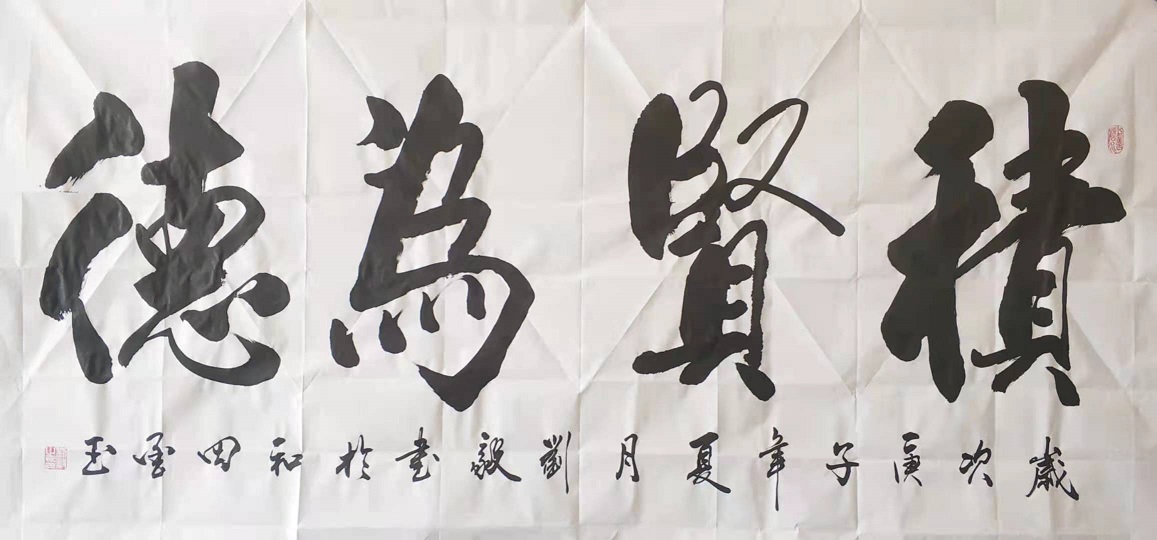 積賢為德
歲次庚子年夏月劉毅書於和田墨玉